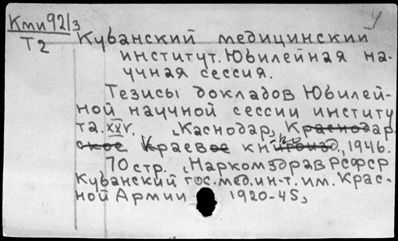 Кми92/3
Т2
Кубанский медицинский
институт. Юбилейная на-
учная сессия.
Тезисы докладов Юбилей-
ной научной сессии институ
та. XXV г. „Каснодар„ Краснодар
ское Краевое кн , 1946.
70 стр. „Наркомздрав РСФСР
Кубанский гос. мед. ин-т. им. Крас-
ной Армии 1920-45„